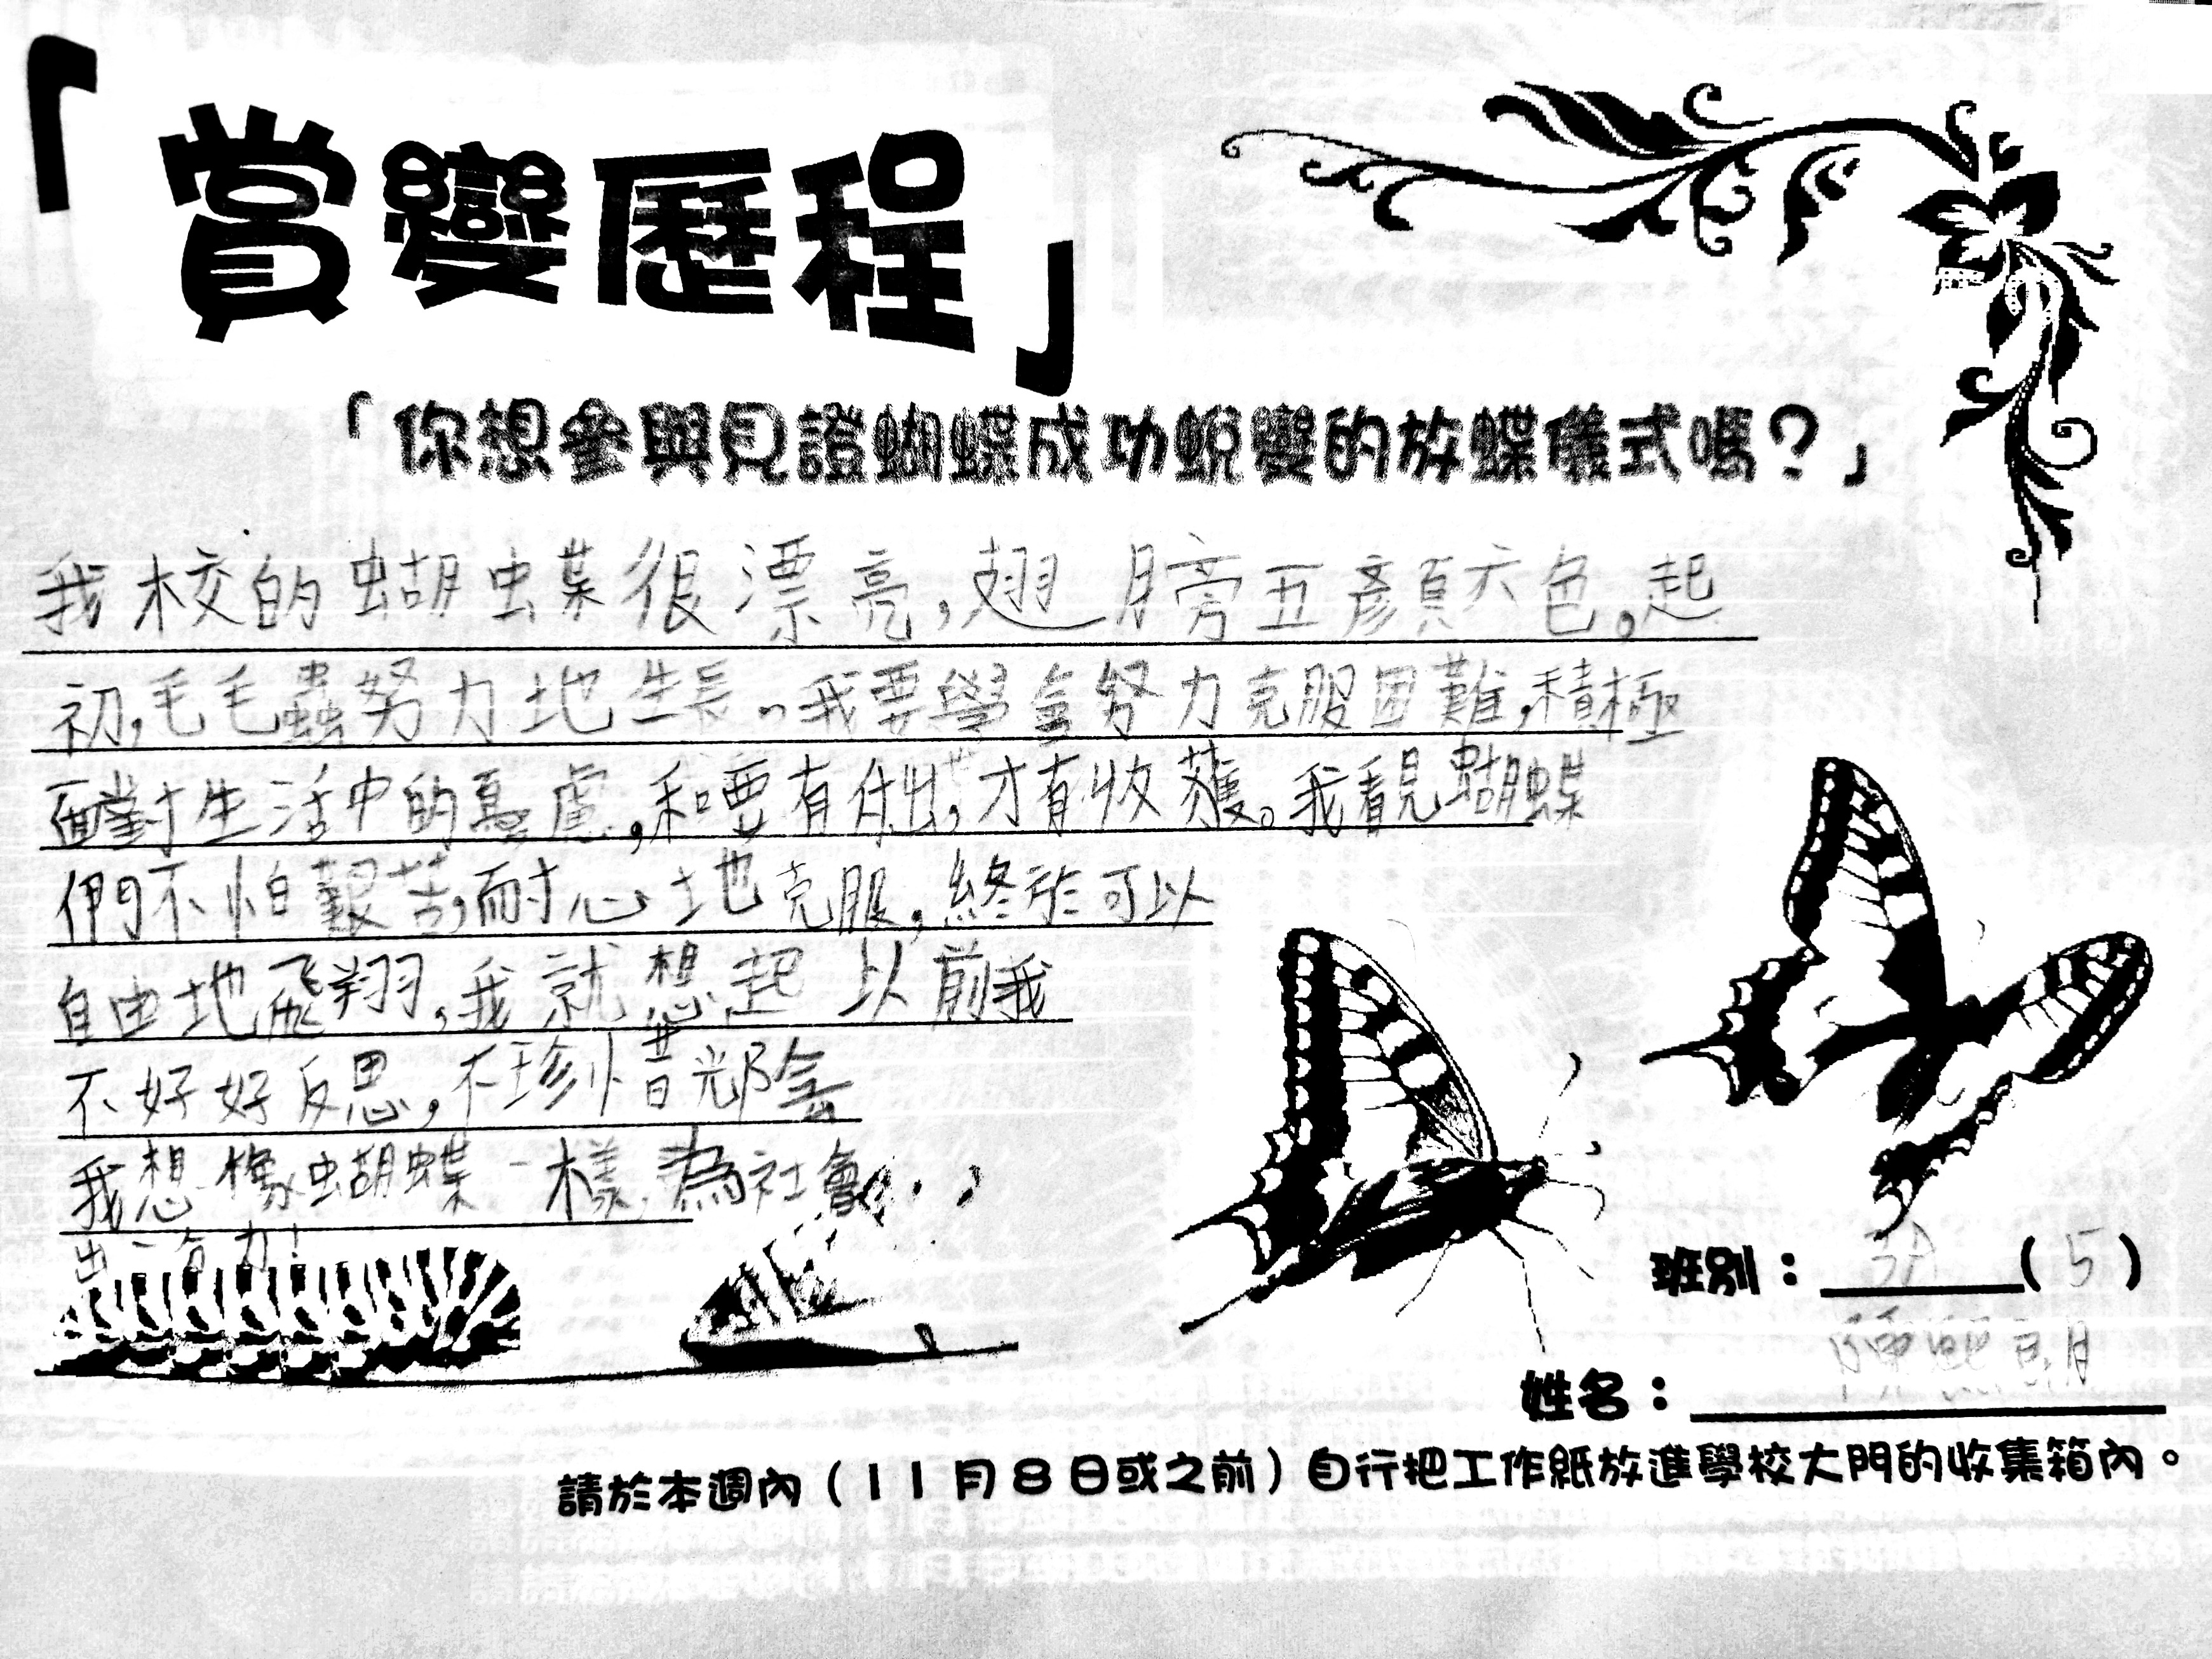 「賞變歷程」
「你想參與見證蝴蝶成功蛻變的放蝶儀式嗎？」
我校的蝴蝶很漂亮，翅膀五顏六色。起
初，毛毛蟲努力地生長。我要學會努力克服困難，積極
面對生活中的憂慮，和要有付出，才有收獲。我看見蝴蝶
們不怕艱苦，耐心地克服，終於可以
自由地飛翔，我就想起以前我
不好好反思，不珍惜光陰
我想像蝴蝶一樣，為社會
出一分力！
班別：3A（5）
姓名：
請於本週內（11月8日或之前）自行把工作紙放進學校大門的收集箱內。